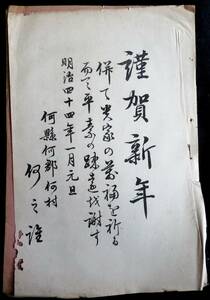 謹賀新年
併て貴家の萬福を祈る
而て平素の疎遠を謝す
明治四十四年一月元旦
何縣何郡何村
何之誰